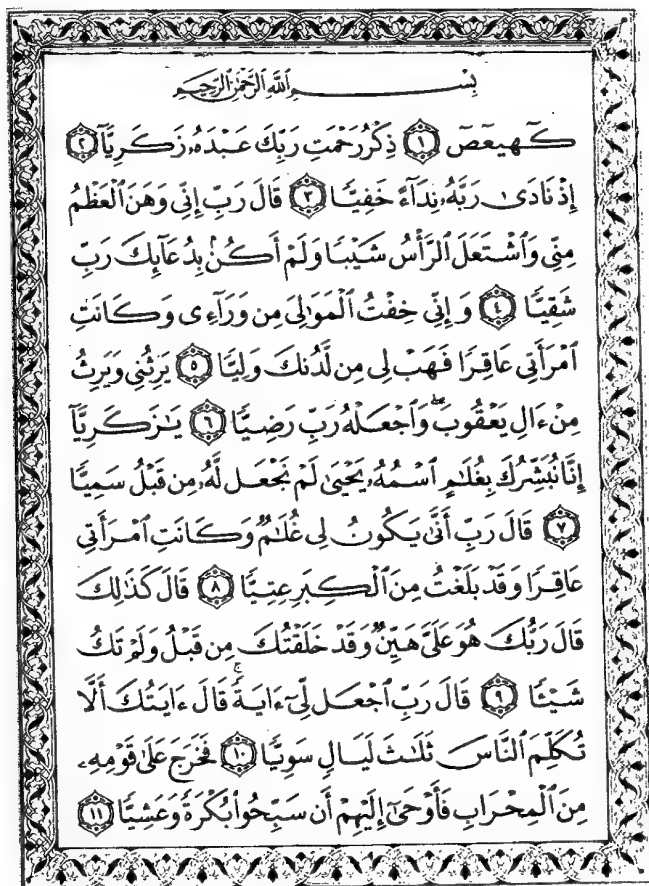 بِسْمِ ٱللَّهِ ٱلرَّحْمَٰنِ ٱلرَّحِيمِ
كٓهيعٓصٓ ١ ذِكْرُ رَحْمَتِ رَبِّكَ عَبْدَهُۥ زَكَرِيَّآ ٢
إِذْ نَادَىٰ رَبَّهُۥ نِدَآءً خَفِيًّا ٣ قَالَ رَبِّ إِنِّى وَهَنَ ٱلْعَظْمُ
مِنِّى وَٱشْتَعَلَ ٱلرَّأْسُ شَيْبًا وَلَمْ أَكُنۢ بِدُعَآئِكَ رَبِّ
شَقِيًّا ٤ وَإِنِّى خِفْتُ ٱلْمَوَٰلِىَ مِن وَرَآءِى وَكَانَتِ
ٱمْرَأَتِى عَاقِرًا فَهَبْ لِى مِن لَّدُنكَ وَلِيًّا ٥ يَرِثُنِى وَيَرِثُ
مِنْ ءَالِ يَعْقُوبَ ۖ وَٱجْعَلْهُ رَبِّ رَضِيًّا ٦ يَٰزَكَرِيَّآ
إِنَّا نُبَشِّرُكَ بِغُلَٰمٍ ٱسْمُهُۥ يَحْيَىٰ لَمْ نَجْعَل لَّهُۥ مِن قَبْلُ سَمِيًّا
٧ قَالَ رَبِّ أَنَّىٰ يَكُونُ لِى غُلَٰمٌ وَكَانَتِ ٱمْرَأَتِى
عَاقِرًا وَقَدْ بَلَغْتُ مِنَ ٱلْكِبَرِ عِتِيًّا ٨ قَالَ كَذَٰلِكَ
قَالَ رَبُّكَ هُوَ عَلَىَّ هَيِّنٌ وَقَدْ خَلَقْتُكَ مِن قَبْلُ وَلَمْ تَكُ
شَيْـًٔا ٩ قَالَ رَبِّ ٱجْعَل لِّىٓ ءَايَةً ۚ قَالَ ءَايَتُكَ أَلَّا
تُكَلِّمَ ٱلنَّاسَ ثَلَٰثَ لَيَالٍ سَوِيًّا ١٠ فَخَرَجَ عَلَىٰ قَوْمِهِۦ
مِنَ ٱلْمِحْرَابِ فَأَوْحَىٰٓ إِلَيْهِمْ أَن سَبِّحُوا۟ بُكْرَةً وَعَشِيًّا ١١